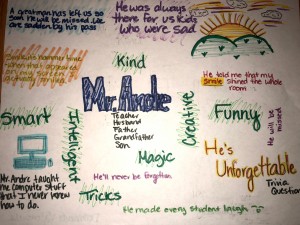 A great man has left us so
soon He will be missed. We
are sudden by his pass
He was always
there for us kids
who were sad
Kind
He told me that my
smile shined the whole
room
Mr. Andre
Teacher
Husband
Father
Grandfather
Son
Smart
Intelligent
Creative
Funny
He will be missed
Magic
He'll never be forgotten
He's
Unforgettable
Trivia
Question
Mr. Andre taught
me computer stuff
that I never knew
how to do.
Tricks
He made every student laugh